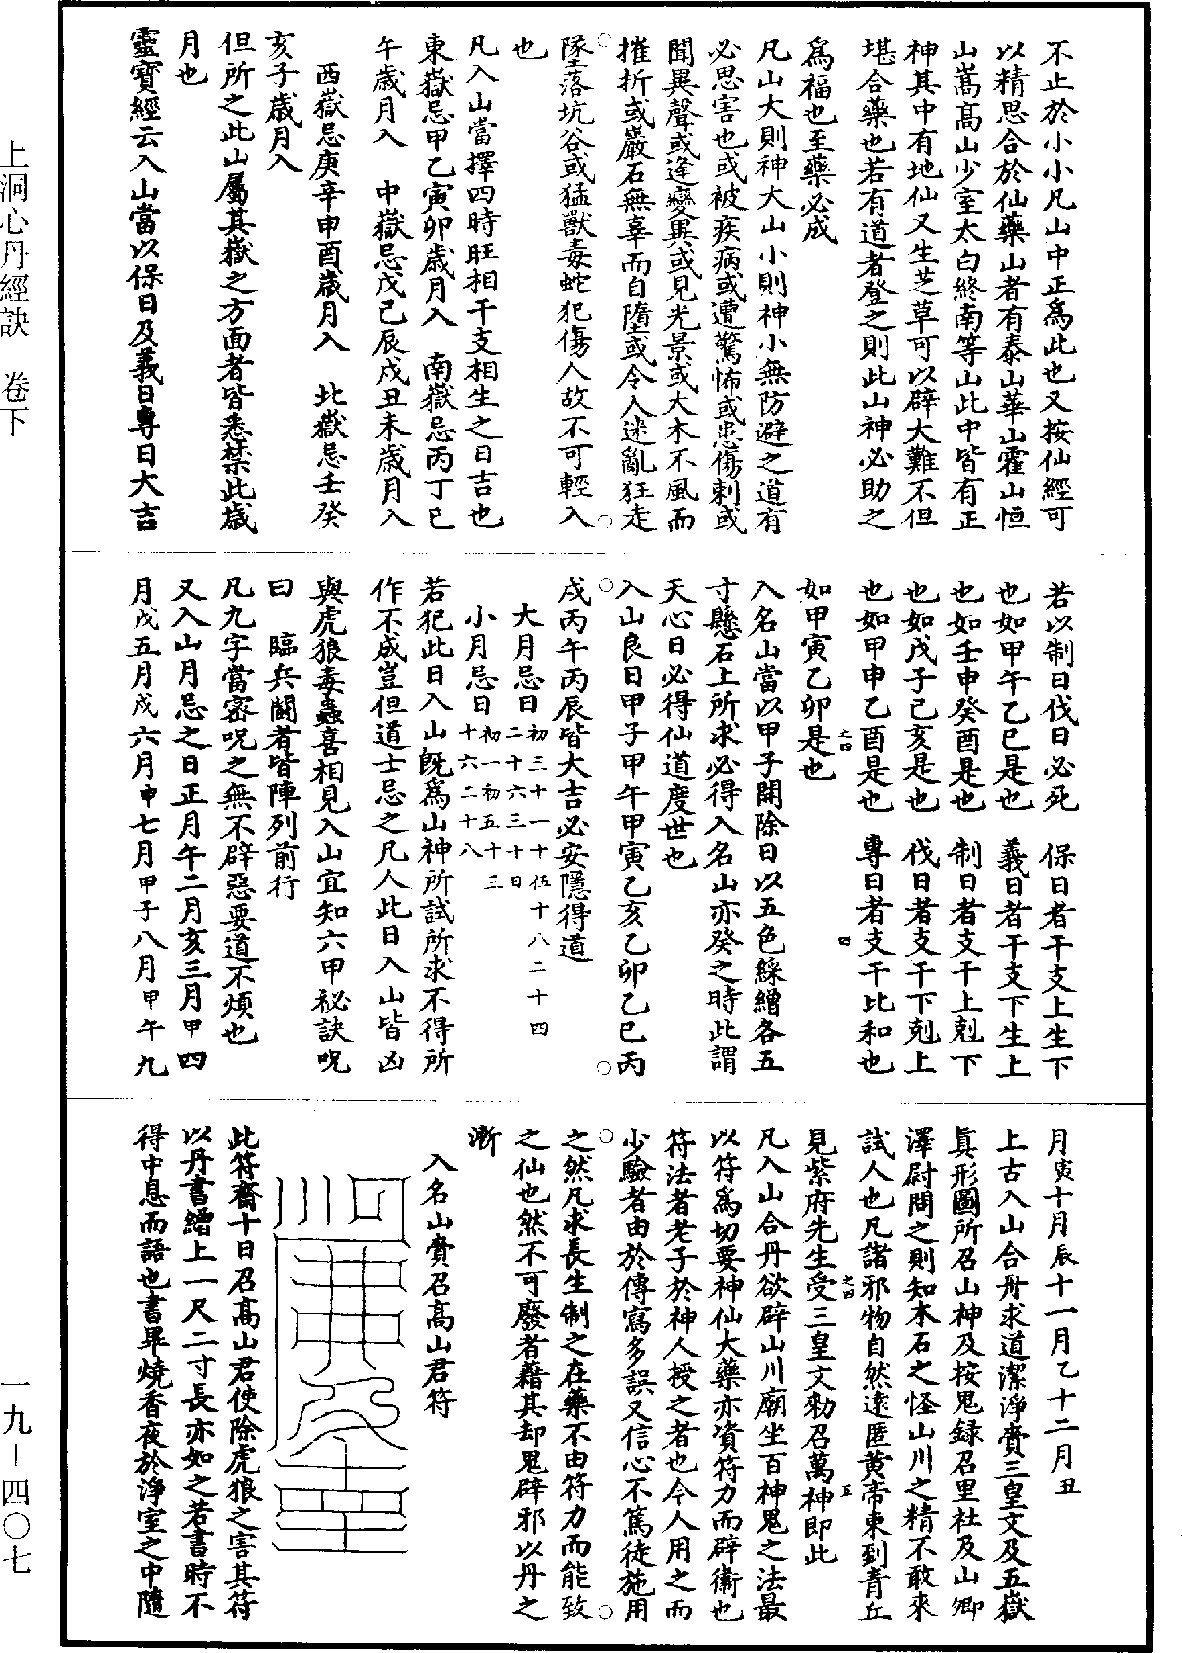 不止於小小凡山中正爲此也又按仙經可
以精思合於仙藥山者有泰山華山霍山恒
山嵩高山少室太白終南等山此中皆有正
神其中有地仙又生芝草可以辟大難不但
堪合藥也若有道者登之則此山神必助之
爲福也至藥必成
凡山大則神大山小則神小無防避之道有
必思害也或被疾病或遭驚怖或患傷刺或
聞異聲或逢變異或見光景或大木不風而
摧折或巖石無辜而自墮或令人迷亂狂走
墜落坑谷或猛獸毒蛇犯傷人故不可輕入
也
凡入山當擇四時旺相干支相生之日吉也
東嶽忌甲乙寅卯歲月入　南嶽忌丙丁巳
午歲月入　中嶽忌戊己辰戌丑未歲月入
西嶽忌庚辛申酉歲月入　北嶽忌壬癸
亥子歲月入
但所之此山屬其嶽之方面者皆悉禁此歲
月也
靈寶經云入山當以保日及義日專日大吉
若以制日伐日必死　保日者干支上生下
也如甲午乙巳是也　義日者干支下生上
也如壬申癸酉是也　制日者支干上剋下
也如戊子己亥是也　伐日者支干下剋上
也如甲申乙酉是也　專日者支干比和也
如甲寅乙卯是也
之四　四
入名山當以甲子開除日以五色綵繒各五
寸懸石上所求必得入名山亦癸之時此謂
天心日必得仙道度世也
入山良日甲子甲午甲寅乙亥乙卯乙巳丙
戌丙午丙辰皆大吉必安隱得道
大月忌日初三十一十伍十八二十四
二十六三十日
小月忌日初一初五十三
十六二十八
若犯此日入山既爲山神所試所求不得所
作不成豈但道士忌之凡人此日入山皆凶
與虎狼毒蟲喜相見入山宜知六甲祕訣呪
曰　臨兵鬭者皆陣列前行
凡九字當密呪之無不辟惡要道不煩也
又入山月忌之日正月午二月亥三月申四
月戌五月戌六月申七月甲子八月甲午九
月寅十月辰十一月乙十二月丑
上古入山合丹求道潔淨賫三皇文及五嶽
眞形圖所召山神及按鬼録召里社及山卿
澤尉問之則知木石之怪山川之精不敢來
試人也凡諸邪物自然遠匿黄帝東到青丘
見紫府先生受三皇文勑召萬神即此
之四　五
凡入山合丹欲辟山川廟坐百神鬼之法最
以符爲切要神仙大藥亦資符力而辟衞也
符法者老子於神人授之者也今人用之而
少驗者由於傳寫多誤又信心不篤徒施用
之然凡求長生制之在藥不由符力而能致
之仙也然不可廢者藉其却鬼辟邪以丹之
漸
入名山賫召高山君符
此符齋十日召高山君使除虎狼之害其符
以丹書繒上一尺二寸長亦如之若書時不
得中息而語也書畢燒香夜於淨室之中隨
上洞心丹經訣　卷下
一九－四〇七